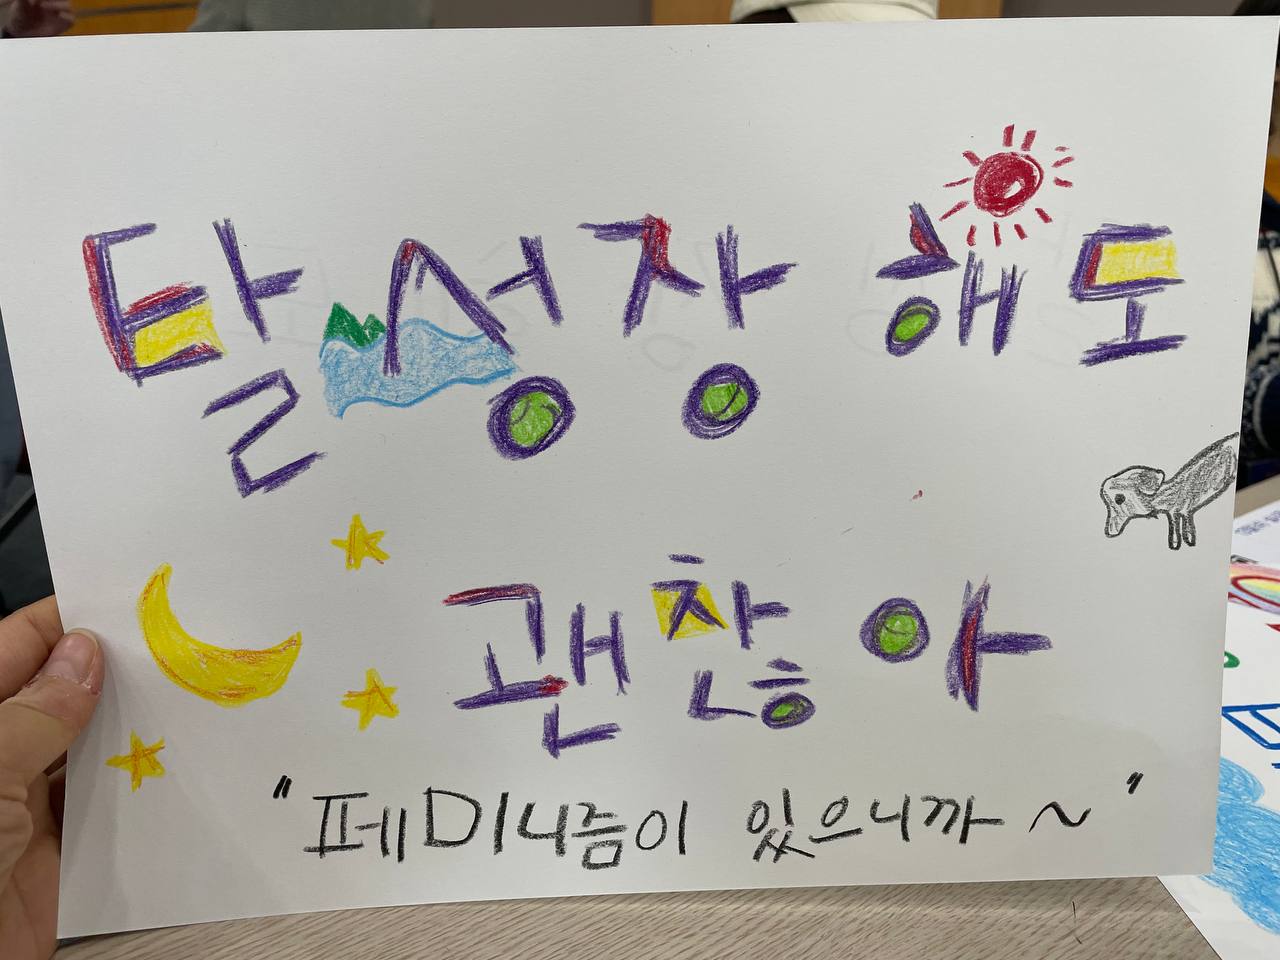 탈성장 해도
괜찮아
"페미니즘이 있으니까~"